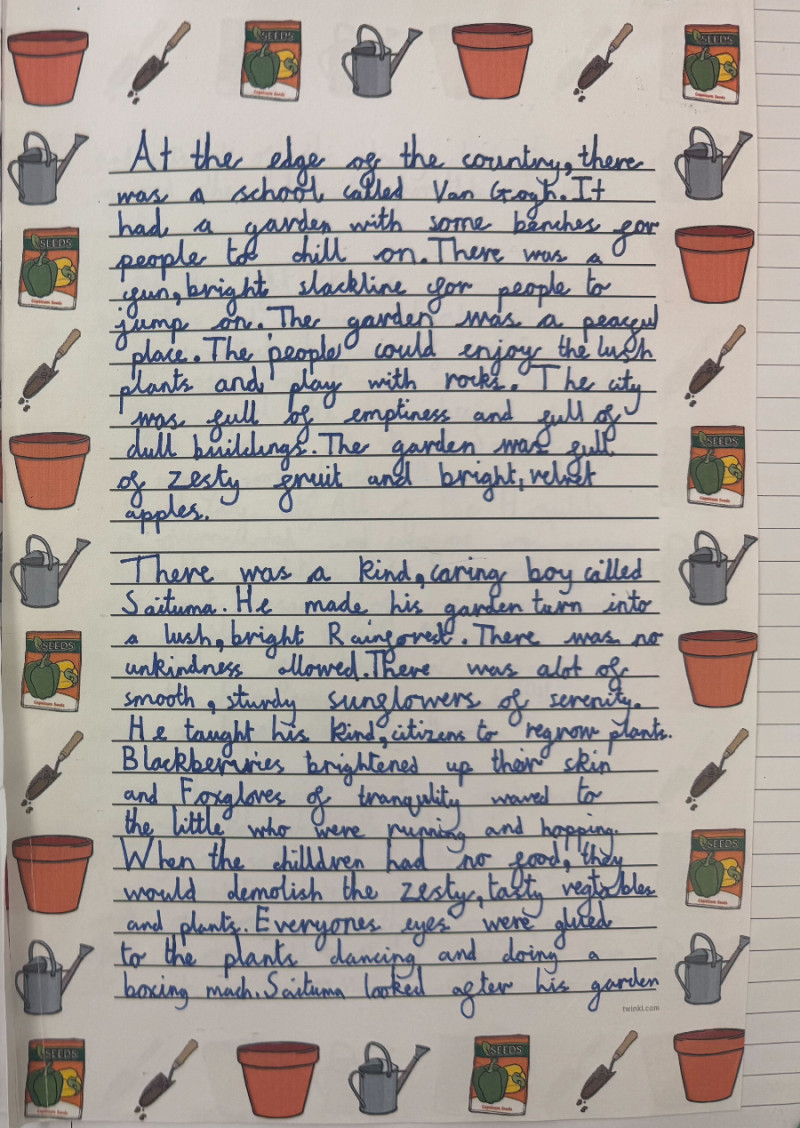 At the edge of the country, there
was a school called Van Gogh. It
had a garden with some benches for
people to chill on. There was a
fun, bright slackline for people to
jump on. The garden was a peaceful
place. The people could enjoy the lush
plants and play with rocks. The city
was full of emptiness and full of
dull buildings. The garden was full
of zesty fruit and bright, velvet
apples.
There was a kind, caring boy called
Saituma. He made his garden turn into
a lush, bright Rainforest. There was no
unkindness allowed. There was alot of
smooth, sturdy sunflowers of serenity.
He taught his kind, citizens to regrow plants.
Blackberries brightened up their skin
and Foxgloves of tranqulity waved to
the little who were running and hopping.
When the chilldren had no food, they
would demolish the zesty, tasty vegtables
and plants. Everyones eyes were glued
to the plants dancing and doing a
boxing mach. Saituma looked after his garden
twinkl.com
SEEDS
Capsicum Seeds
SEEDS
Capsicum Seeds
SEEDS
Capsicum Seeds
SEEDS
Capsicum Seeds
SEEDS
Capsicum Seeds
SEEDS
Capsicum Seeds
SEEDS
Capsicum Seeds
SEEDS
Capsicum Seeds